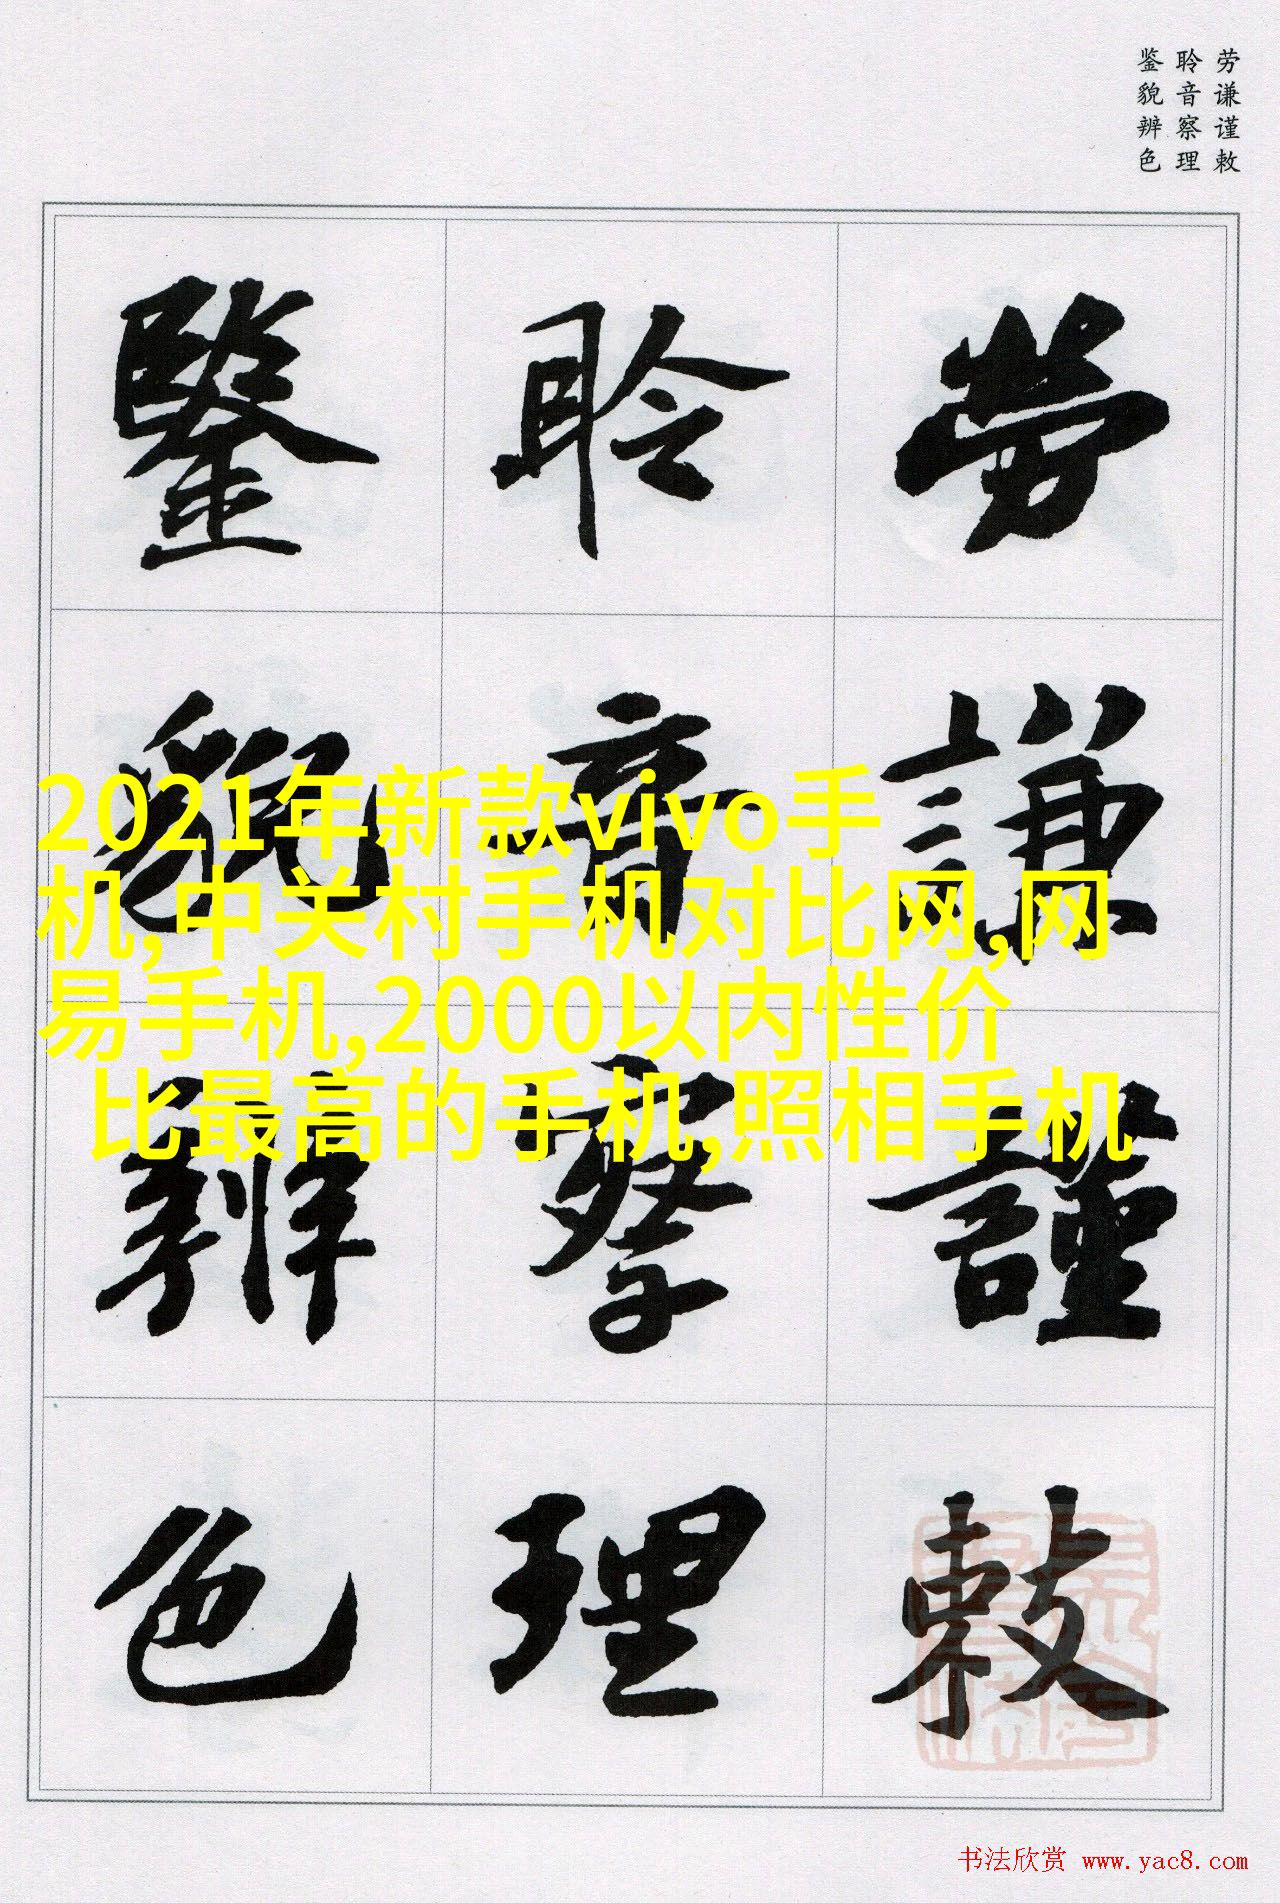 劳谦谨敕
聆音察理
鉴貌辨色
勞謙謹敕
聆音察理
鑒貌辨色
2021年新款vivo手
机,中关村手机对比网,网
易手机,2000以内性价
比最高的手机,照相手机
书法欣赏 www.yac8.com